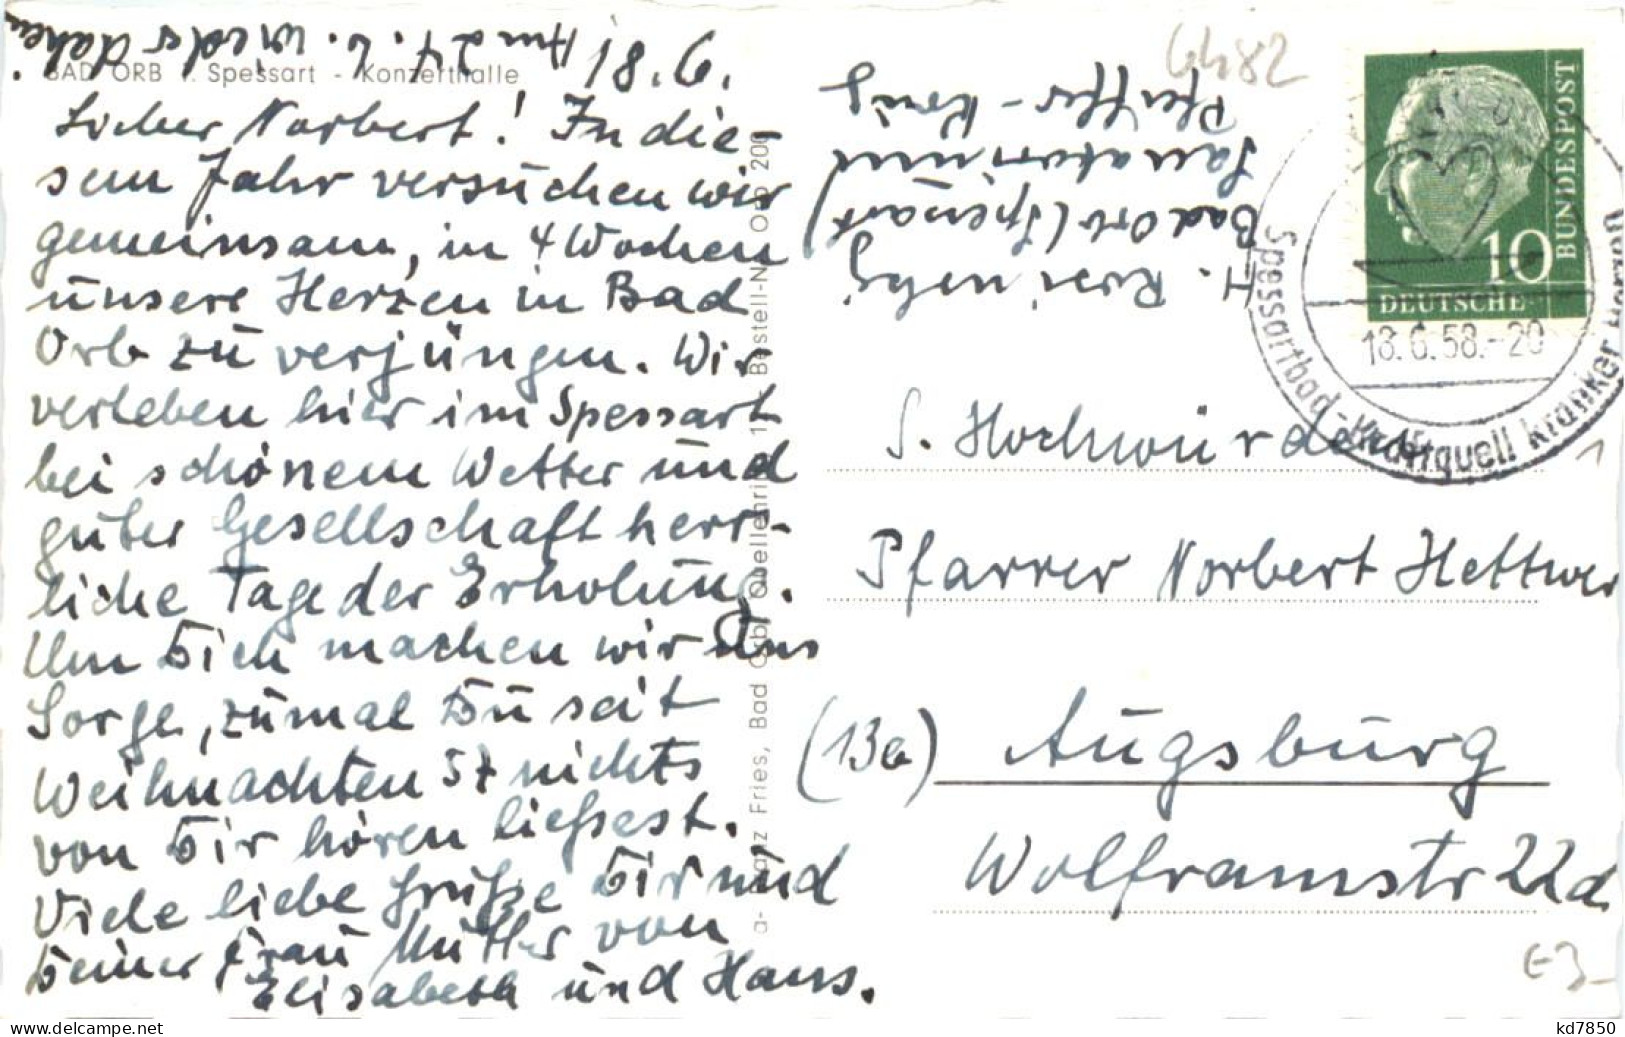 18.6.
Am 24.6. wieder daheim
BAD ORB i. Spessart - Konzerthalle
Lieber Norbert! In die-
sem Jahr versuchen wir
gemeinsam, in 4 Wochen
unsere Herzen in Bad
Orb zu verjüngen. Wir
verleben hier im Spessart
bei schönem Wetter und
guter Gesellschaft herr-
liche Tage der Erholung.
Um Dich machen wir uns
Sorge, zumal Du seit
Weihnachten 57 nichts
von Dir hören ließest.
Viele liebe Grüße Dir und
Deiner Frau Mutter von
Elisabeth und Hans.
Franz Fries, Bad Orb, Quellenring
Bestell-N
Orb 200
H.
Bad Orb (Spessart)
Sanatorium
Pfeiffer-König
6482
BUNDESPOST
10
DEUTSCHE
18.6.58.-20
Spessartbad - Kraftquell kranker Herzen
S. Hochwürden
Pfarrer Norbert Hettwer
(13a) Augsburg
Wolframstr 22d
E3-
kd7850